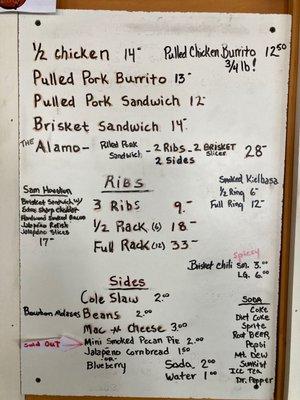 1/2 chicken 14-
Pulled Chicken Burrito 12.50
3/4 lb!
Pulled Pork Burrito 13-
Pulled Pork Sandwich 12-
Brisket Sandwich 14-
THE Alamo - Pulled Pork Sandwich - 2 Ribs - 2 BRISKET Slices 28-
2 Sides
Ribs
Smoked Kielbasa
1/2 Ring 6-
Full Ring 12-
Sam Houston
Brisket Sandwich w/
Extra Sharp Cheddar
Hardwood Smoked Bacon
Jalapeño Relish
Jalapeño Slices
17-
3 Ribs 9.-
1/2 Rack (6) 18.-
Full Rack (12) 33-
Spicy
Brisket chili SM. 3.00
LG. 6.00
Sides
Cole Slaw 2.00
Bourbon Molasses Beans 2.00
Mac n Cheese 3.00
Sold OUT
Mini Smoked Pecan Pie 2.00
Jalapeño Cornbread 1.50
-OR-
Blueberry
Soda 2.00
Water 1.00
SODA
Coke
Diet Coke
Sprite
Root BEER
Pepsi
Mt. Dew
Sunkist
ICE TEA
Dr. Pepper